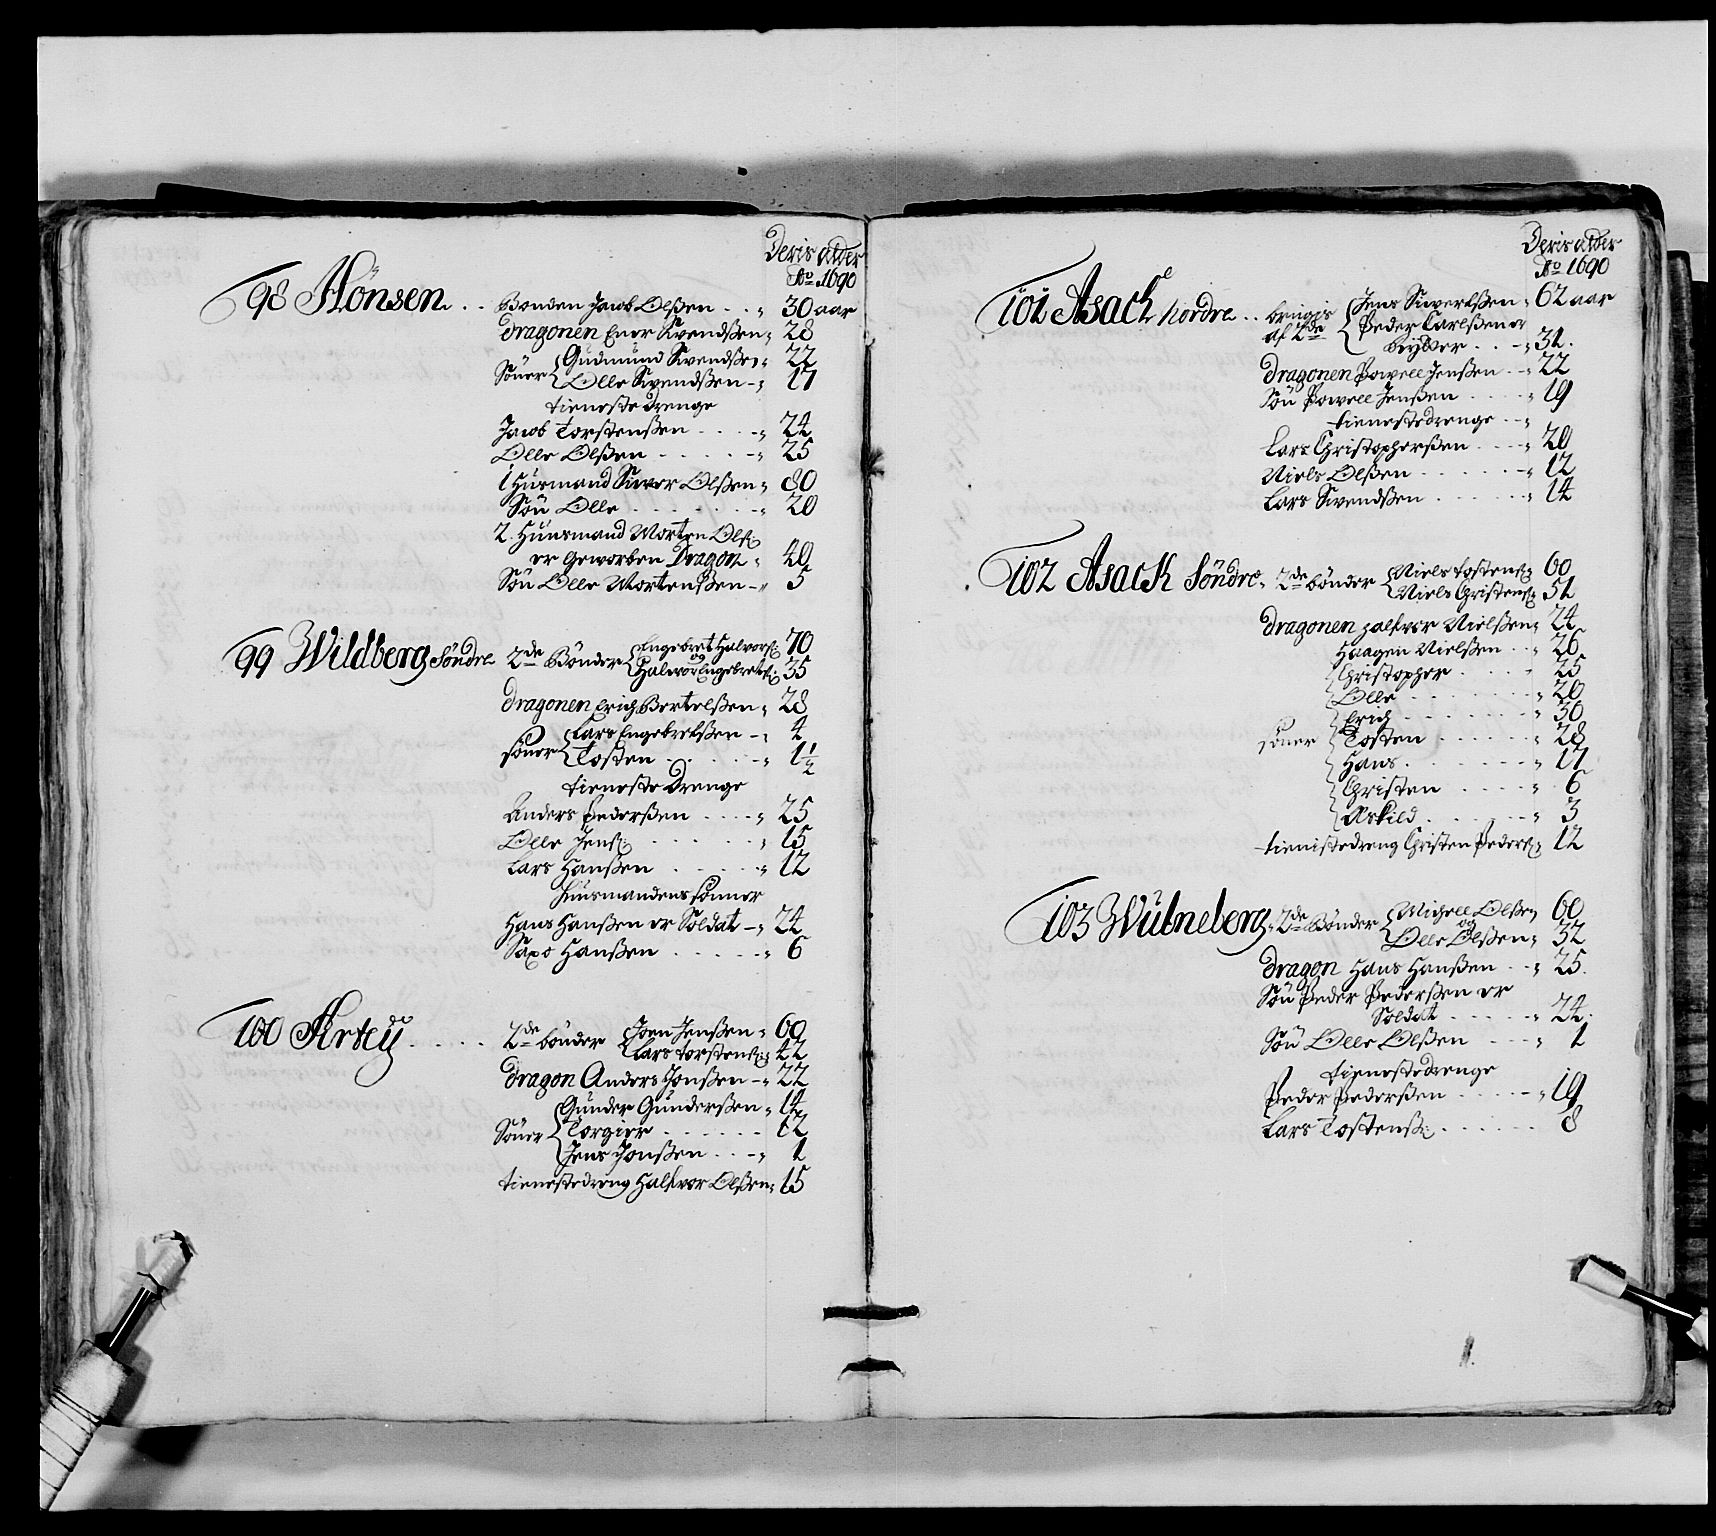 Deris alder
Ao 1690
98 Hönsen . . Bonden Jacob Olßen . . „ 30 aar
dragonen Enor Swendßen „ 28
Söner Gudmund Swendßen „ 22
Olle Swendßen - „ 17
tieneste drenge
Jacob Torstenßen . . . . „ 24
Olle Olßen . . . . . „ 25
1 Huusmand Siwer Olßen „ 80
Sön Olle . . . . . . . „ 20
2. Huusmand Morten Olß:
er Geworben Dragon „ 40
Sön Olle Mortenßen - „ 5
99 Wildberg Söndre 2de Bönder Engebret Halvorß: 70
og
Halvor Engebretß: 35
dragonen Erich Bertelßen „ 28
söner Lars Engebretßen - „ 4
Tosten . . . . . „ 1 1/2
tieneste Drenge
Anders Pederßen . . . . „ 25
Olle Jenß: . . . . . . „ 15
Lars Hanßen . . . . . „ 12
Huusmandens sönner
Hans Hanßen er Soldat - „ 24
Saxo Hanßen . . . . . „ 6
100 Artey . . . . . 2de bönder Joen Jenßen „ 60
Lars torstenß: „ 42
dragon Anders Jonßen - „ 22
Söner Gunder Gunderßen „ 14
Torgier . . . . . . 12
Jens Jonßen . . - „ 1
tienestedreng Halfvor Olßen „ 15
Deris alder
Ao 1690
101 Asack Nordre . . brugis Jens Siwerlßen „ 62 aar
af 2de Peder Carlßen er
Rytter . . - „ 31.
dragonen Powell Jenßen . . „ 22
Sön Powell Jenßen . . . . „ 19
tienestedrenge . . „
Lars Christopherßen . . . „ 20
Niels Olßen . . . . . . „ 12
Lars Swendßen . . . . . „ 14
102 Asack Söndre „ 2de bönder Niels tostenß: 60
Niels Christenß: 51
dragonen Halfvor Nielßen „ 24
Haagen Nielßen . . „ 26
Christopher . . . . „ 25
Olle . . . . . . . „ 20
Erich . . . . . . . „ 30
söner Tosten . . . . . . „ 28
Hans . . . . . . . „ 17
Christen . . . . „ 6
Askild . . . . . . „ 3
tienistedreng Christen Pederß: „ 12
103 Wulneberg „ 2de Bönder Michell Olßen 60
og
Olle Olßen „ 32
dragon Hans Hanßen . . „ 25.
Sön Peder Pederßen er
Soldat . . . . . „ 24.
Sön Olle Olßen . . . „ 1
tienestedrenge
Peder Pederßen . . . . - „ 19
Lars Tostenß: . . . . . . 8